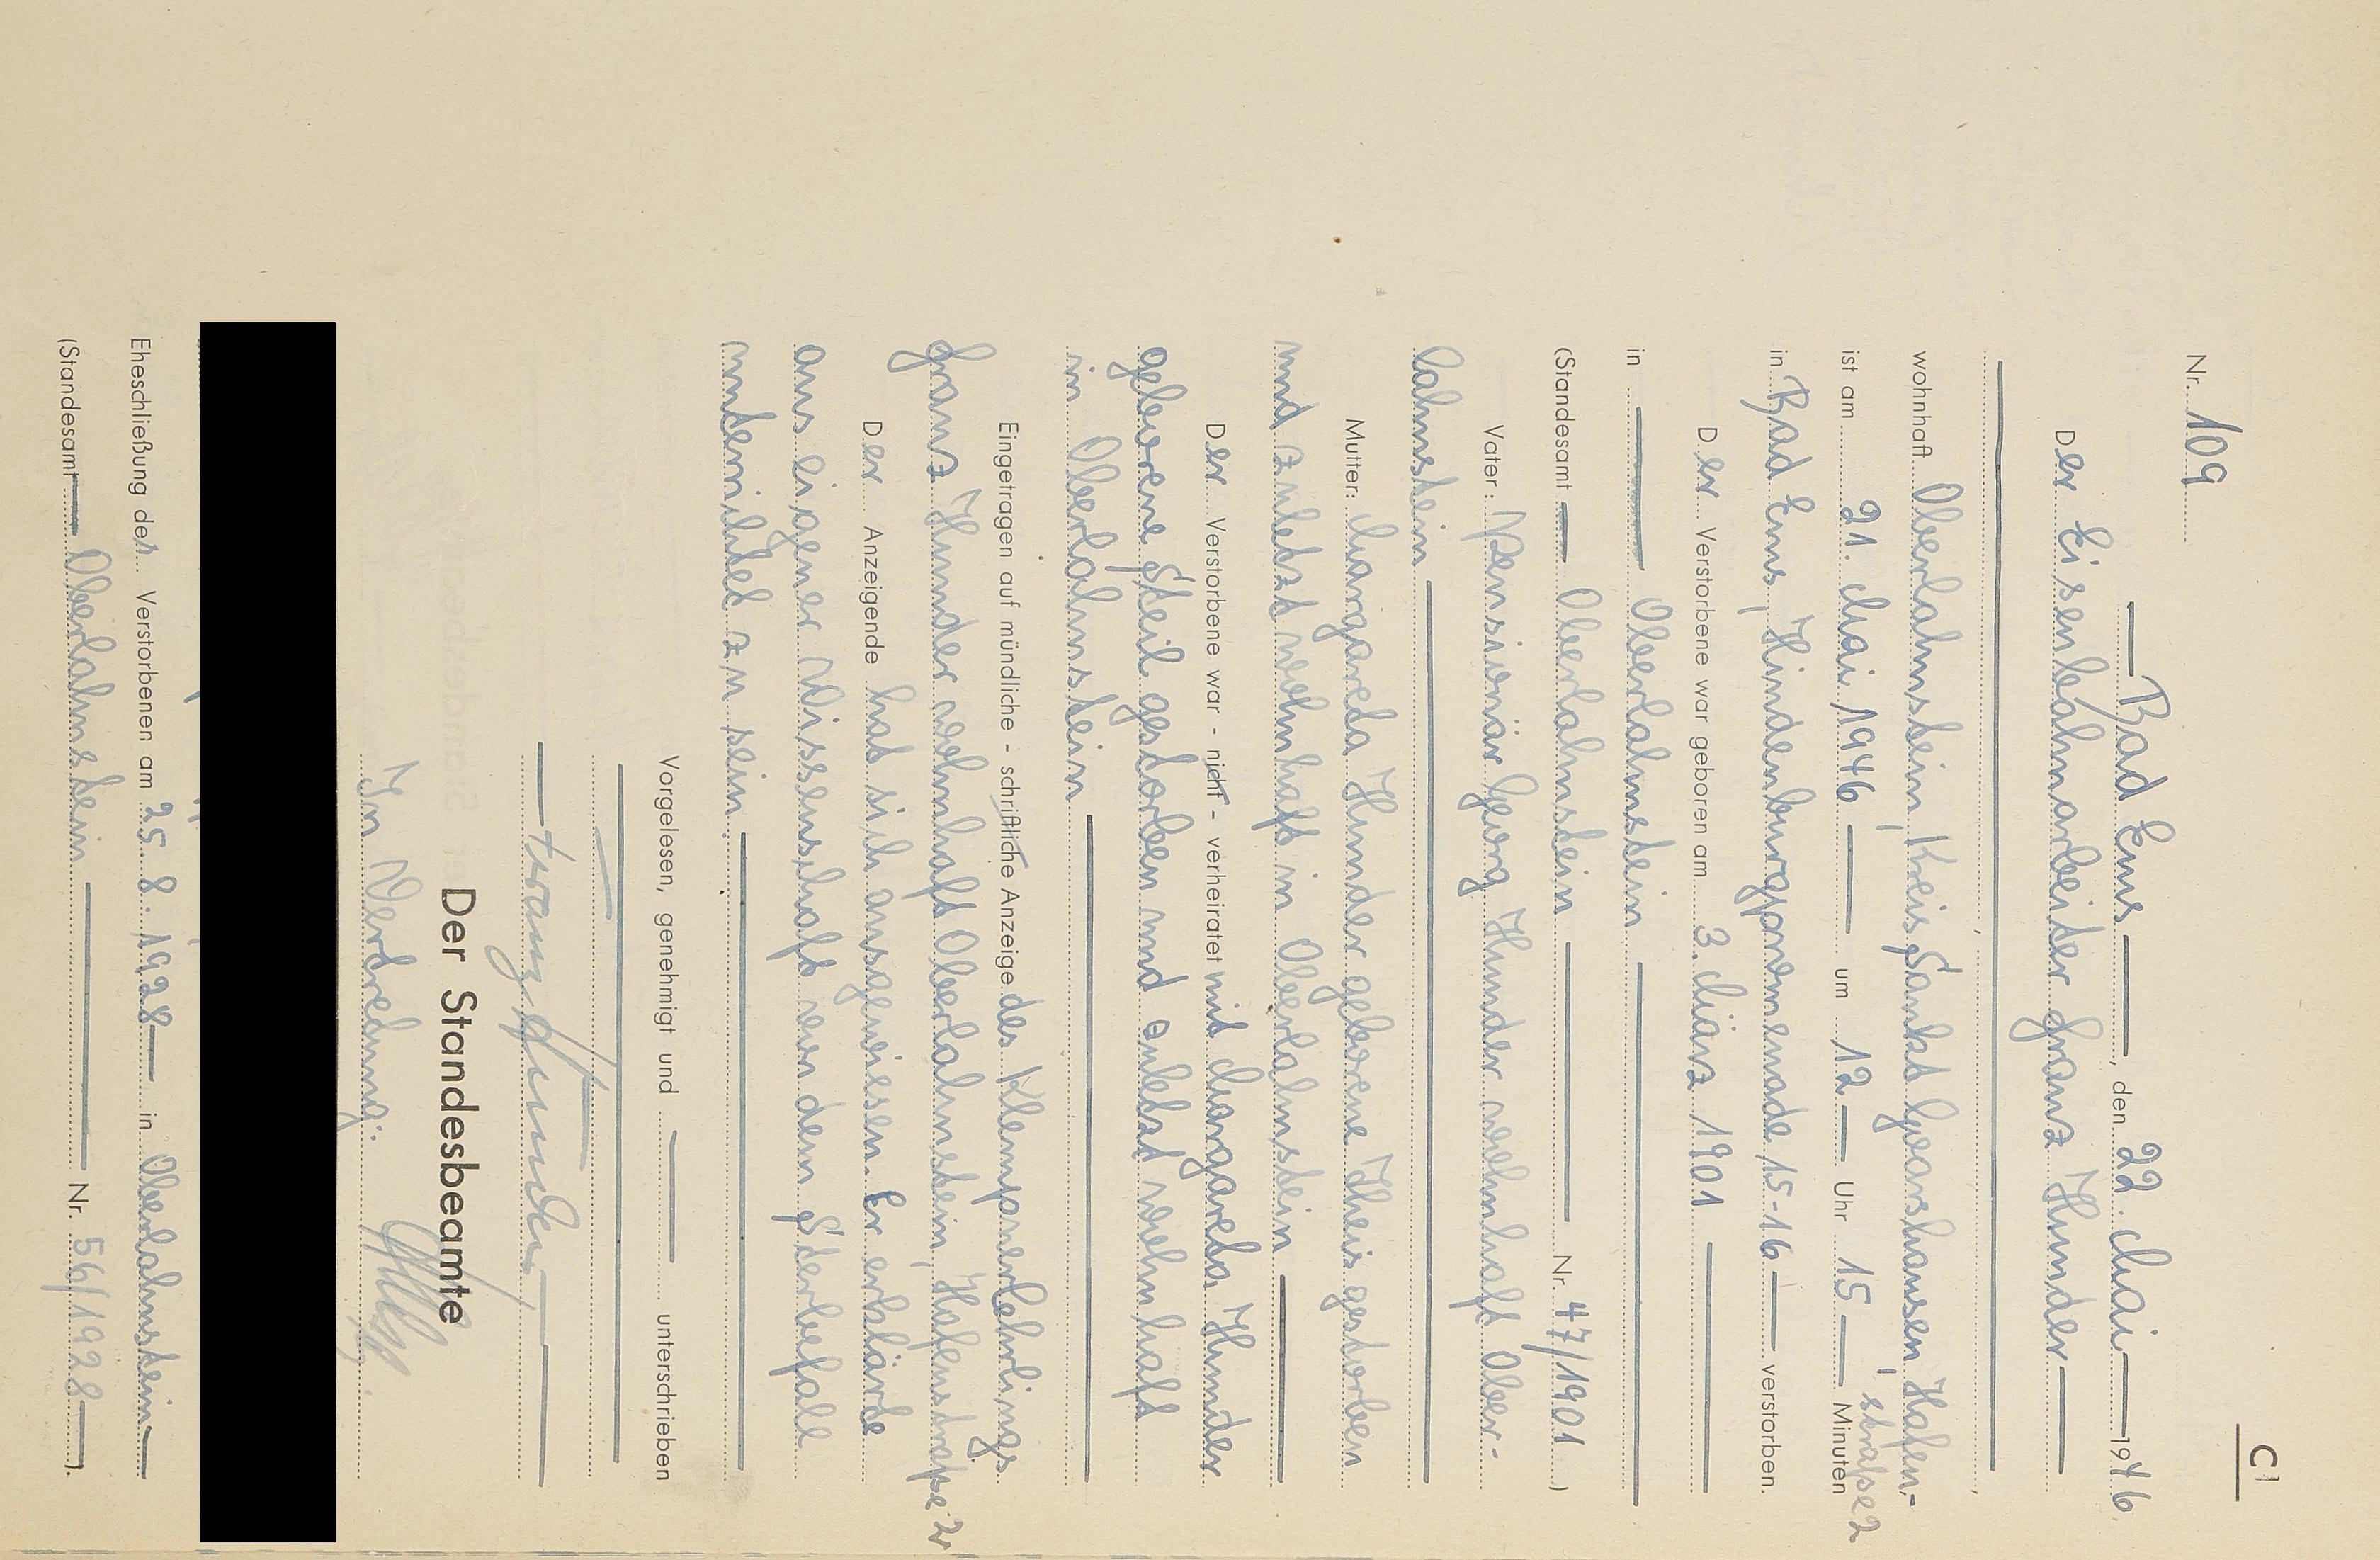 C1
Nr. 109
— Bad Ems —, den 22. Mai — 1946
Der Eisenbahnarbeiter Franz Hunder —
wohnhaft Oberlahnstein, Kreis Sankt Goarshausen, Hafen-
straße 2
ist am 21. Mai 1946 — um 12 — Uhr 15 — Minuten
in Bad Ems, Hindenburgpromenade 15-16 — verstorben.
Der Verstorbene war geboren am 3. März 1901 —
in — Oberlahnstein —
(Standesamt — Oberlahnstein — Nr. 47/1901)
Vater: Pensionär Georg Hunder wohnhaft Ober-
lahnstein —
Mutter: Margareta Hunder geborene Theis gestorben
und zuletzt wohnhaft in Oberlahnstein —
Der Verstorbene war - nicht - verheiratet mit Margareta Hunder
geborene Steil gestorben und zuletzt wohnhaft
in Oberlahnstein —
Eingetragen auf mündliche - schriftliche Anzeige des Klempnerlehrlings
Franz Hunder wohnhaft Oberlahnstein, Hafenstraße 2
Der Anzeigende hat sich ausgewiesen. Er erklärte
aus eigener Wissenschaft von dem Sterbefall
unterrichtet zu sein. —
Vorgelesen, genehmigt und — unterschrieben
— Franz Hunder —
Der Standesbeamte
In Vertretung:
Eheschließung des Verstorbenen am 25. 8. 1928 — in Oberlahnstein —
(Standesamt — Oberlahnstein — Nr. 56/1928 —).